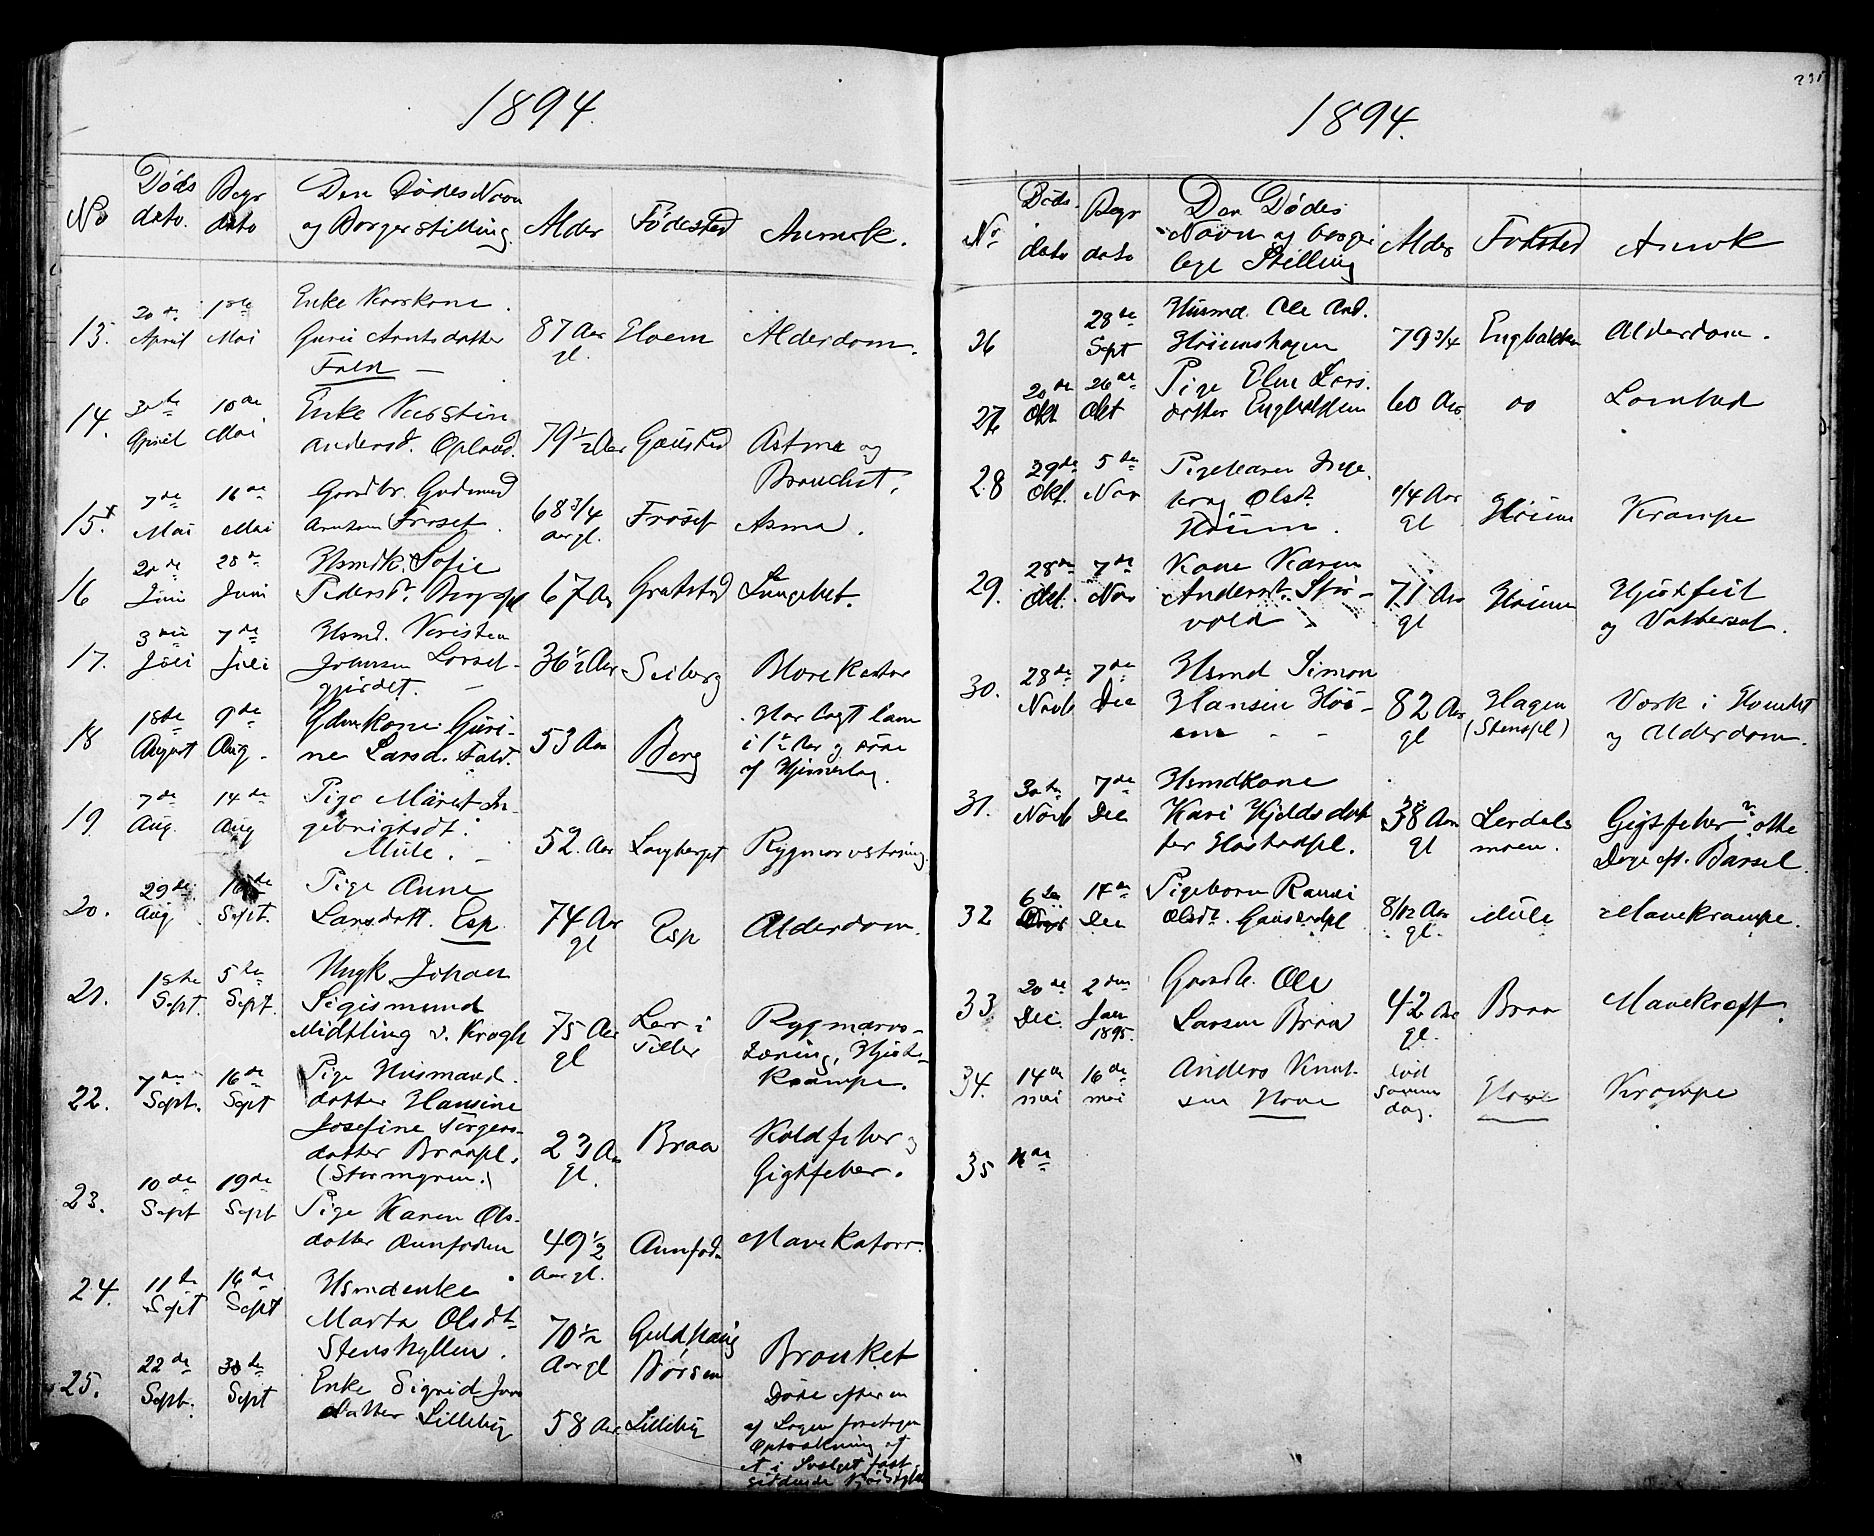 1894.
No
Døds
dato.
Begr
dato
Den Dødes Navn
og Borgerstilling.
Alder
Fødested
Anmerk.
13.
20de
April
1ste
Mai
Enke Kaarkone
Guru Arntsdatter
Fald
87 Aar
gl.
Hoem
Alderdom.
14.
30te
April
10de
Mai
Enke Kierstin
Andersd. Opland.
79½ Aar
Gaustad
Astma og
Bronchit.
15.
7de
Mai
16de
Mai
Gaardbr. Gudmund
Arntsen Froset.
68 3/4
Aar gl.
Froset
Asma.
16
20de
Juni
28de
Juni
Hsmdk. Sofie
Pedersdt.
67 Aar
Gratstad
Lungebet.
17.
3die
Juli
7de
Juli
Hsmd. Kristen
Johnsen Lorset-
gjerdet.
36½ Aar
Seiberg
Blærekatar
18
1ste
August
9de
Aug.
Gdmkone Guri-
ne Larsd. Fald.
53 Aar
Berg
Har lagt lam
i 1½ Aar og døde
af Hjerneslag.
19
7de
Aug.
14de
Aug
Pige Märet In-
gebrigtsdt.
Mule.
52. Aar
Langberget
Rygmarvstæring.
20.
29de
Aug
10de
Sept.
Pige Anne
Larsdatt. Esp.
74 Aar
gl
Esp
Alderdom.
21.
1ste
Sept.
5te
Sept.
Ungk. Johan
Sigismund
Midtling v. Krogh
75 Aar
gl
Leer i
Tiller
Rygmarvs-
tæring, Hjerte-
krampe.
22.
7de
Sept.
16de
Sept
Pige Husmand-
datter Hansine
Josefine Torgers-
datter Braapl.
(Stormyren.)
23 Aar
gl.
Braa
Koldfeber og
Gigtfeber.
23.
10de
Sept
19de
Sept
Pige Karen Ols-
datter Aunfoden
49½
Aar gl.
Aunfod.
Mavekatarr.
24.
11te
Sept
16de
Sept
Hsmdenke
Marta Olsdt.
Stenshyllen.
70½
Aar gl
Guldhaug
Børsen
Bronket
25.
22de
Sept.
30de
Sept
Enke Sigrid Jons
datter Lilleby
58 Aar
Lilleby
Døde efter en
af Lægen foretagen
Optrækning af
et i Svælget fast-
siddende Kjødstykke
1894.
Nr.
Døds-
dato
Begr
dato
Den Dødes
Navn og borger
lige Stilling
Alder
Fødsted
Anmk
26
28de
Sept
Husmd. Ole And.
Høiumshagen
79 3/4
Engbakken
Alderdom.
27
20de
Okt
26de
Okt
Pige Elen Lars-
datter Engbakken
60 Aar
oo
Lamhed
28
29de
Okt.
5te
Nov
Pigebarn Inge-
borg Olsdt.
Høium.
1/4 Aar
gl
Høium
Krampe
29.
28de
Okt.
7de
Nov
Kone Karen
Andersdt. Stor-
vold
71 Aar
gl
Høium
Hjertfeil
og Vattersot.
30.
28de
Novb
7de
Dec
Hsmd Simon
Hansen Høi-
um
82 Aar
gl
Hagen
(Stenspl)
Værk i Hovedet
og Alderdom.
31.
30te
Novb
7de
Dec
Hsmdkone
Kari Kjeldsdat
ter Hastadpl.
38 Aar
gl
Lerdals
moen.
Gigtfeber? otte
Dage eft. Barsel.
32
6te
17de
Dec
Pigebarn Randi
Olsdt. Gaustadpl
8/12 Aar
gl.
Mule
Mavekrampe.
33
20de
Dec.
2den
Jan
1895.
Gaardb. Ole
Larsen Braa
42 Aar
gl.
Braa
Mavekræft.
34.
14de
mai
16de
mai
Anders Knut-
sen Hove
død
samme
dag.
Hove
Krampe
35
4de